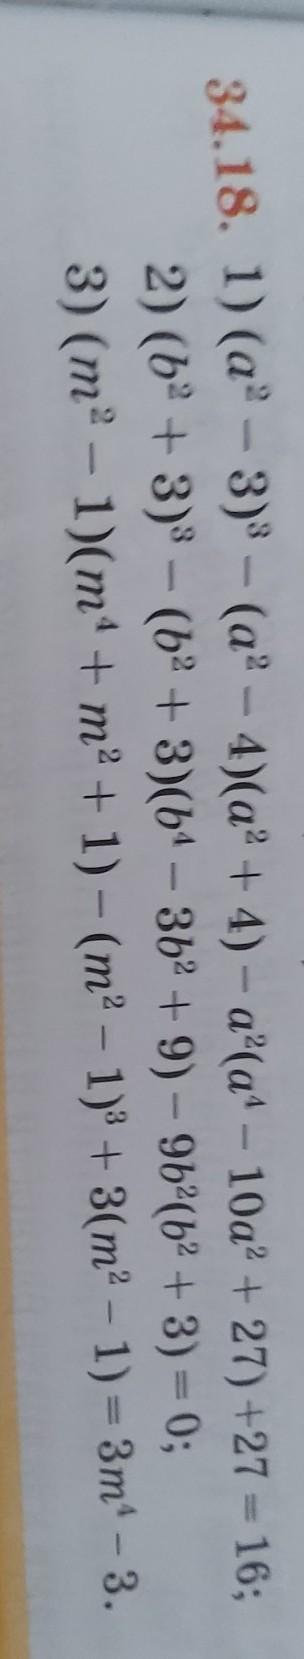 34.18. 1) (a² − 3)³ − (a² − 4)(a² + 4) − a²(a⁴ − 10a² + 27) +27 = 16;
2) (b² + 3)³ − (b² + 3)(b⁴ − 3b² + 9) − 9b²(b² + 3) = 0;
3) (m² − 1)(m⁴ + m² + 1) − (m² − 1)³ + 3(m² − 1) = 3m⁴ − 3.